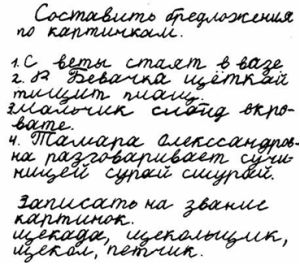 Составить бредложения
по картинкам.
1. С веты стаят в вазе
2. К Бевачка щёткай
тищит плащ.
3. мальчик слоид вкро-
вате.
4. Тамара Олекссандров-
на разговаривает сучи-
ницей сурай смурай.
Записать на звание
картинок.
щекада, щекольщик,
щекол, петчик.